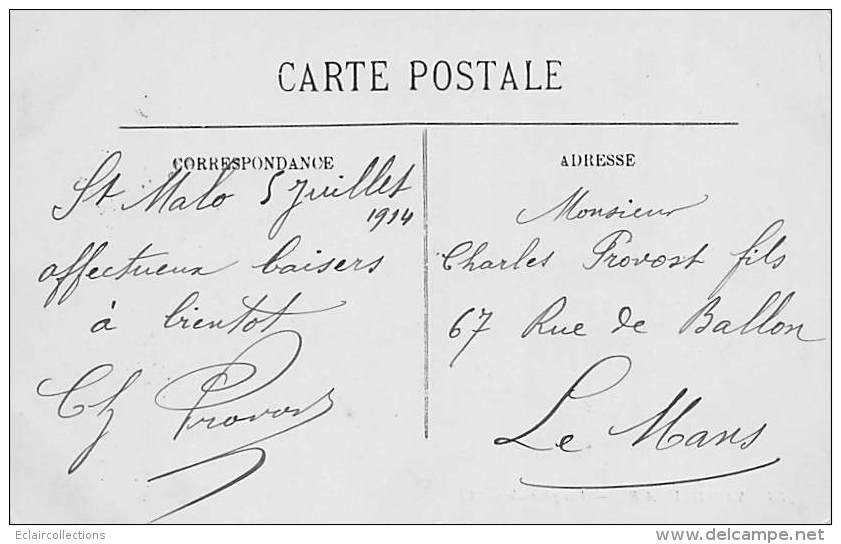 CARTE POSTALE
CORRESPONDANCE
St Malo 5 Juillet
1914
affectueux baisers
à bientot
Ch Provost
ADRESSE
Monsieur
Charles Provost fils
67 Rue de Ballon
Le Mans
Eclaircollections
delcampe.net